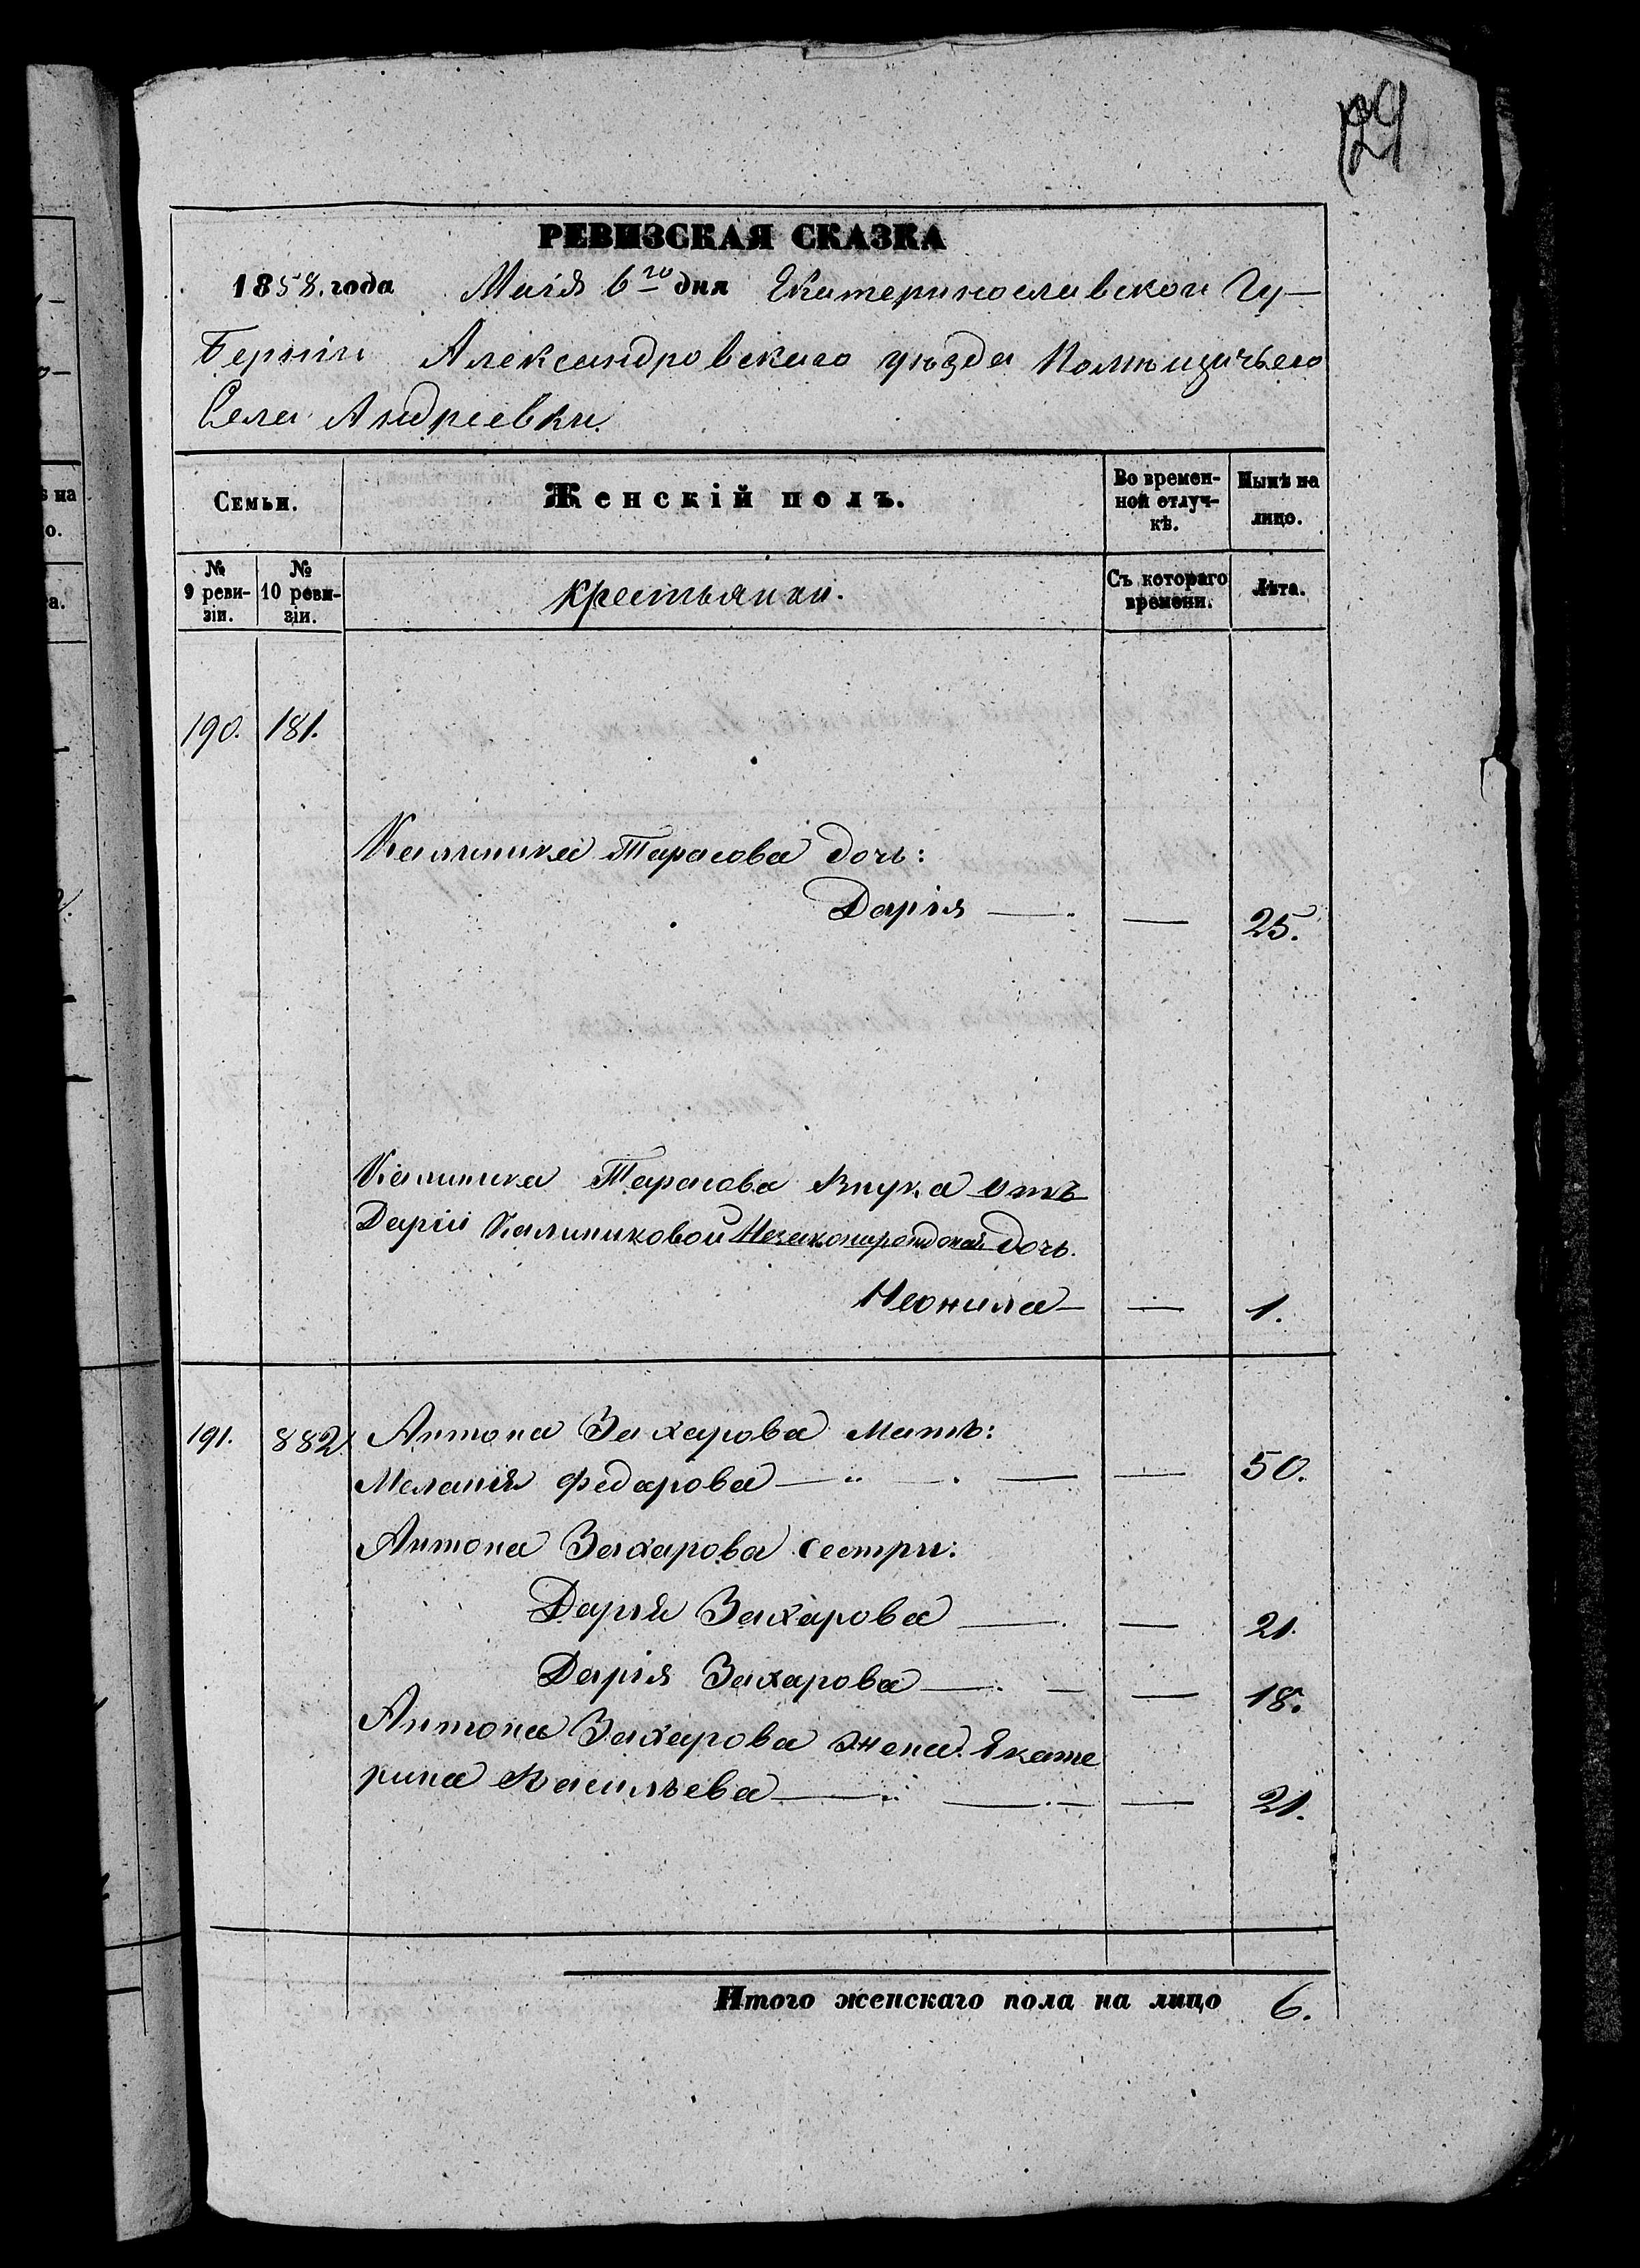 129
РЕВИЗСКАЯ СКАЗКА
1858. года Маія 6го дня Екатеринославской Гу-
берніи Александровскаго уѣзда Помѣщичьего
Села Андріевки.
Семьи. Женскій полъ. Во времен- Нынѣ на
ной отлуч- лицо.
кѣ.
№ № Крестьянки. Съ котораго Лѣта.
9 реви- 10 реви- времени.
зіи. зіи.
190. 181.
Калиника Тарасова дочь:
Дарія — — 25.
Калиника Тарасова Внука отъ
Даріи Калиниковой Незаконарожденая дочь.
Неонила — — 1.
191. 882. Антона Захарова Мать:
Меланія Федарова — — — 50.
Антона Захарова сестры:
Дарія Захарова — — 21.
Дарія Захарова — — — 18.
Антона Захарова жена. Екате
рина Васильева — — — 21.
Итого женскаго пола на лицо 6.